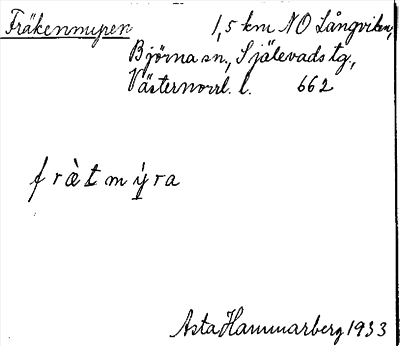 Fräkenmyren 1,5 km NO Långviken,
Björna sn., Själevads tg,
Västernorrl. l. 662
fràtmýra
Asta Hammarberg 1933